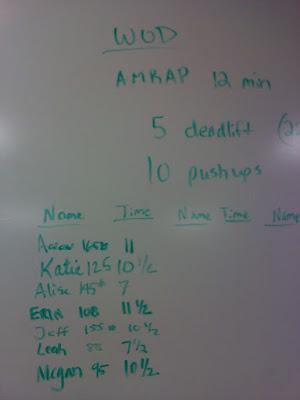 WOD
AMRAP 12 min
5 deadlift (22
10 pushups
Name Time Name Time Name
Aaron 11
Katie 125 10 1/2
Alise 145# 7
ERIN 108 11 1/2
Jeff 155# 10 1/2
Leah 7 1/2
Megan 95 10 1/2